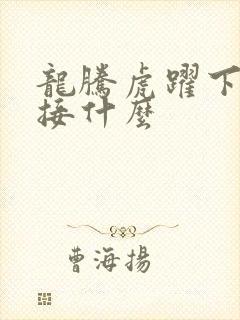 龍騰虎躍下
接什麼
曹海揚